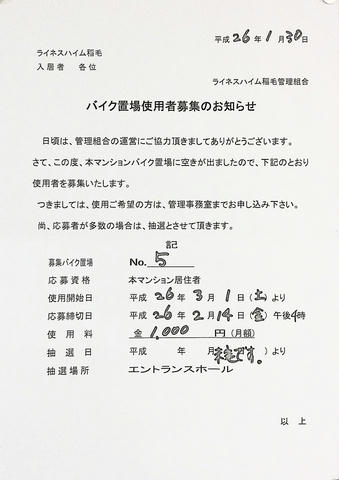 平成 26 年 1 月 30 日
ライネスハイム稲毛
入居者　各位
ライネスハイム稲毛管理組合
バイク置場使用者募集のお知らせ
日頃は、管理組合の運営にご協力頂きましてありがとうございます。
さて、この度、本マンションバイク置場に空きが出ましたので、下記のとおり
使用者を募集いたします。
つきましては、使用ご希望の方は、管理事務室までお申し込み下さい。
尚、応募者が多数の場合は、抽選とさせて頂きます。
記
募集バイク置場 No. 5
応募資格 本マンション居住者
使用開始日 平成 26 年 3 月 1 日 (土) より
応募締切日 平成 26 年 2 月 14 日 (金) 午後4時
使用料 金 1,000 円 (月額)
抽選日 平成 年 月 未定です。 ) より
抽選場所 エントランスホール
以上